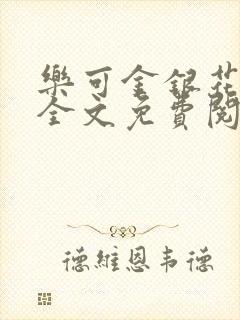 樂可金銀花
全文免費閱
德維恩韦德